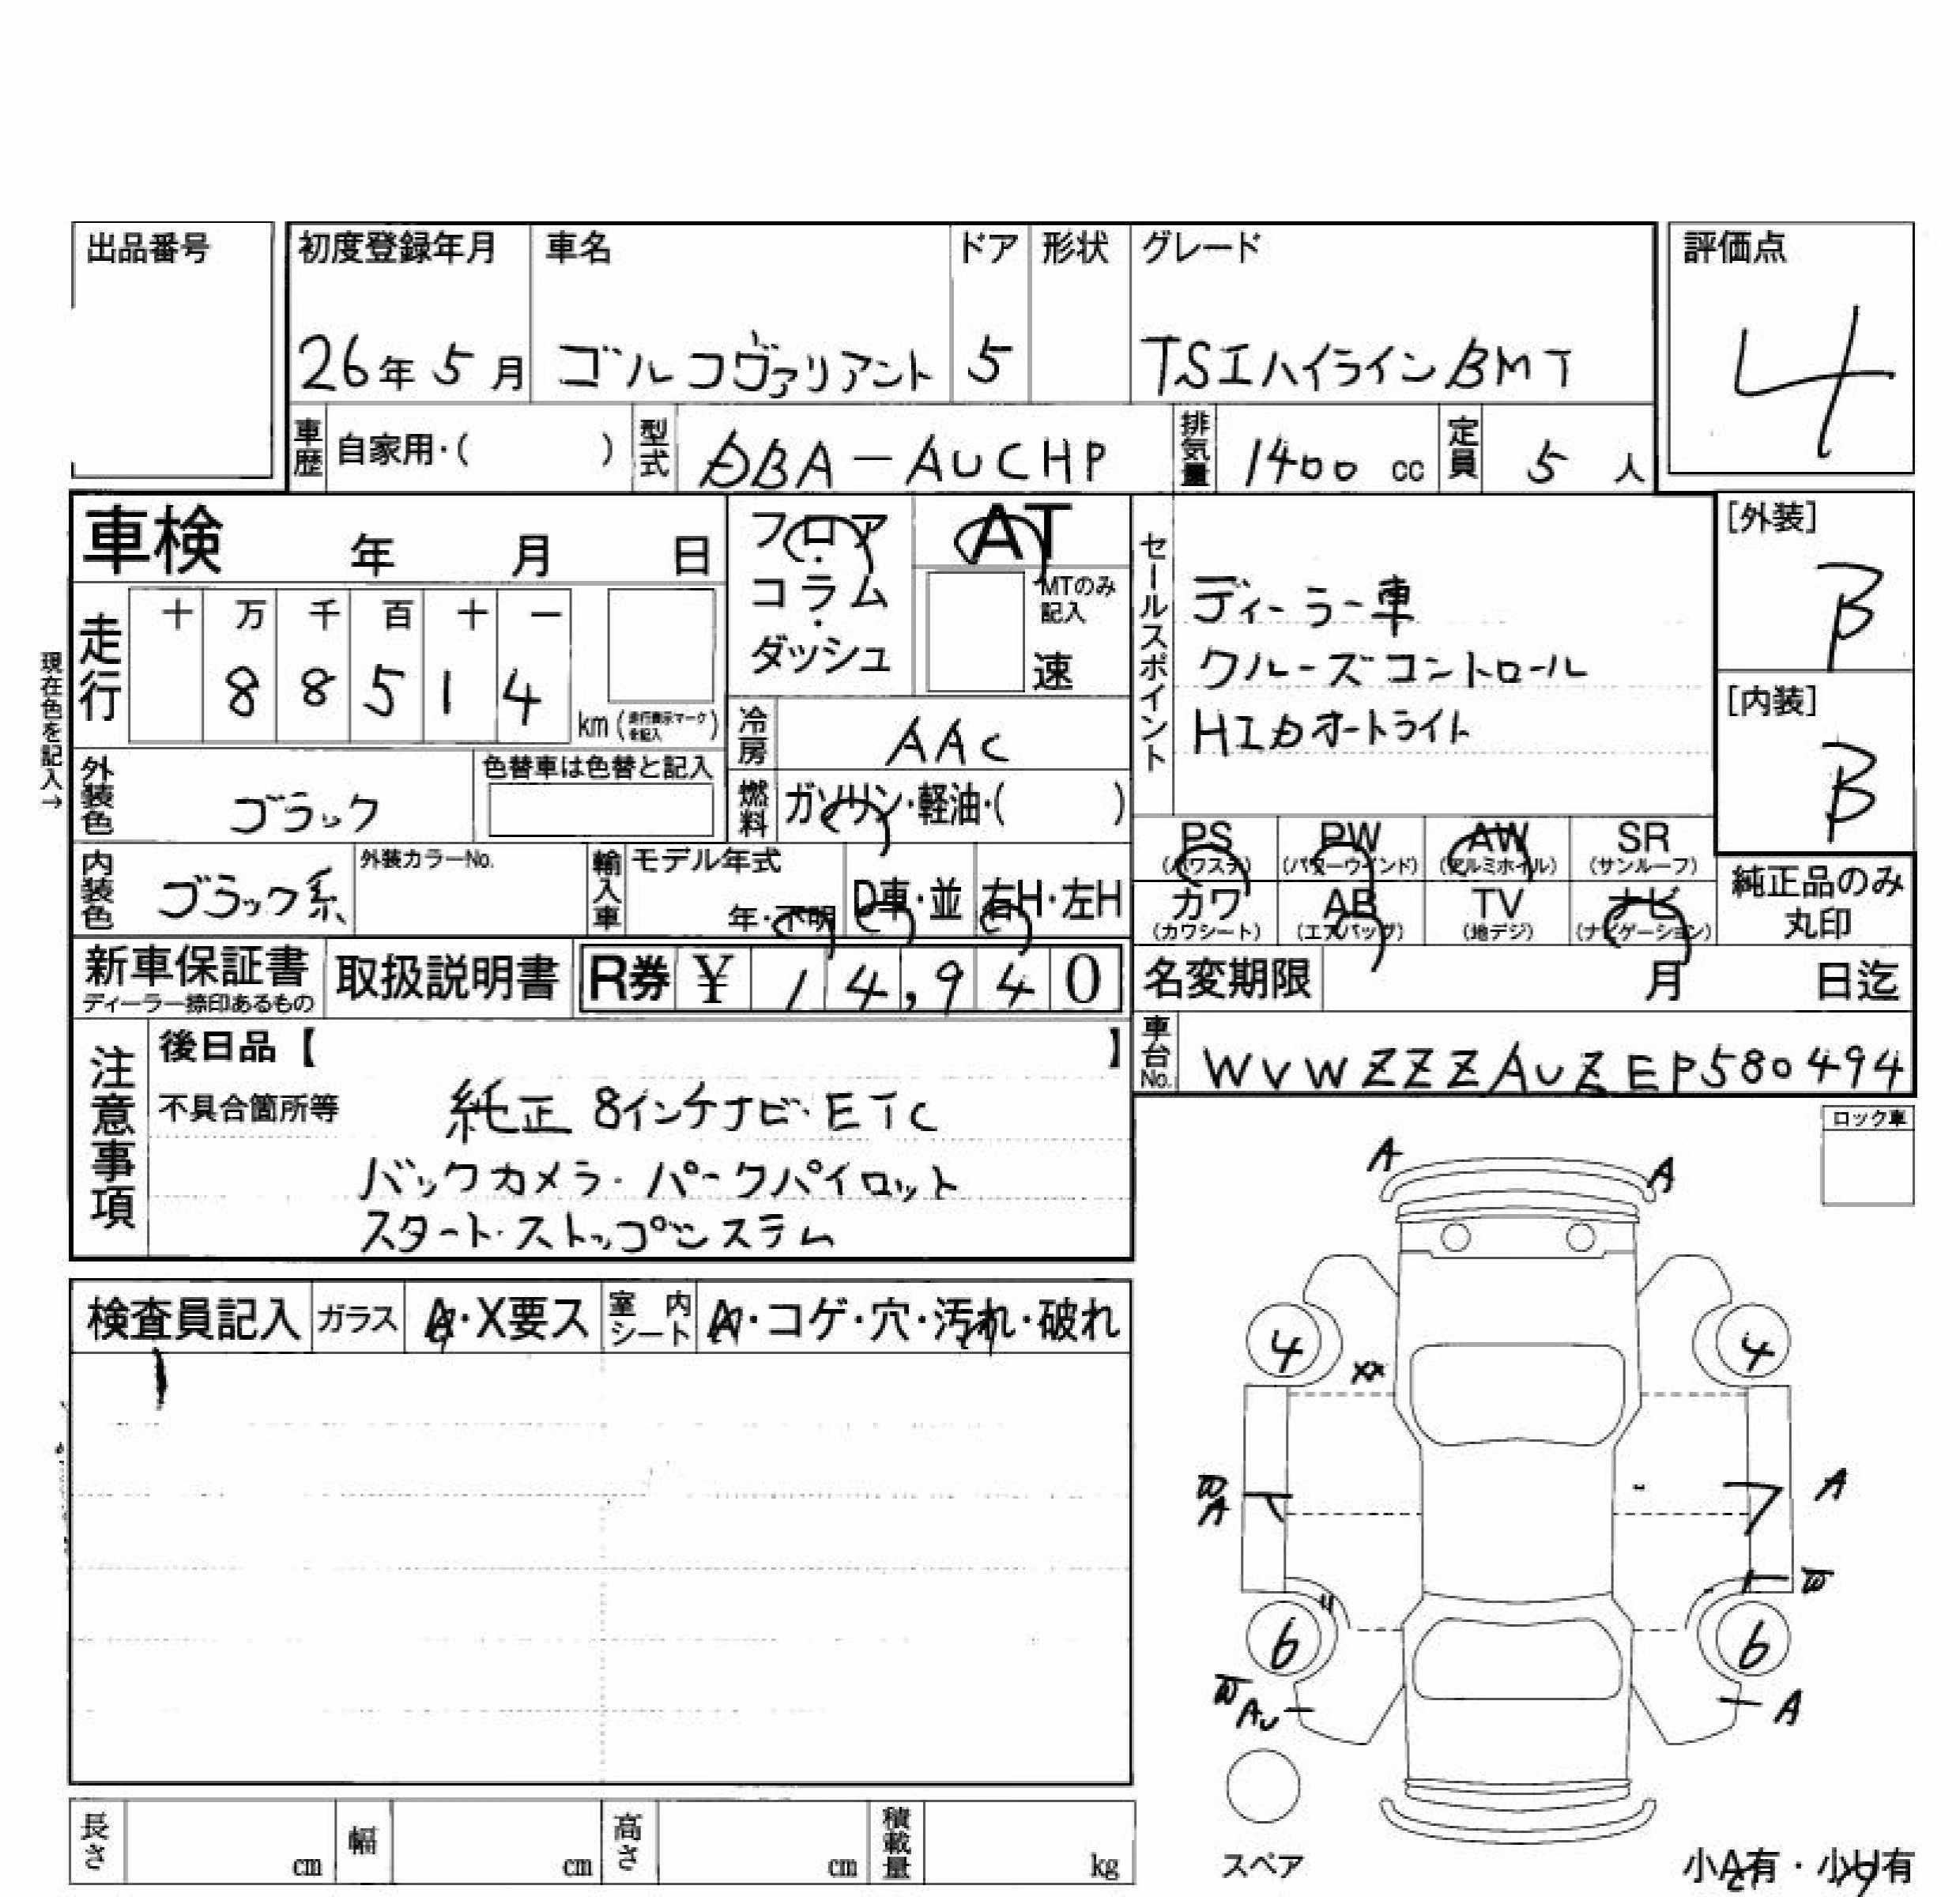 出品番号
初度登録年月 車名 ドア 形状 グレード 評価点
26年 5月 ゴルフヴァリアント 5 TSIハイラインBMT 4
車歴 自家用・( ) 型式 DBA-AUCHP 排気量 1400 cc 定員 5 人
車検 年 月 日
フロア・コラム・ダッシュ
AT
MTのみ記入
速
セールスポイント
ディーラー車
クルーズコントロール
HIDオートライト
[外装]
B
[内装]
B
現在色を記入→
走行 十 万 千 百 十 一
8 8 5 1 4
km (走行表示マークを記入)
冷房 AAC
外装色 ブラック 色替車は色替と記入
燃料 ガソリン・軽油・( )
内装色 ブラック系 外装カラーNo.
輸入車 モデル年式 年・不明 D車・並 右H・左H
PS (パワステ) PW (パワーウインド) AW (アルミホイル) SR (サンルーフ)
カワ (カワシート) AB (エアバッグ) TV (地デジ) ナビ (ナビゲーション)
純正品のみ
丸印
新車保証書
ディーラー捺印あるもの
取扱説明書 R券 ¥ 14,940
名変期限 月 日迄
車台No. WVWZZZAUZEP580494
注意事項
後日品【 】
不具合箇所等 純正 8インチナビ・ETC
バックカメラ・パークパイロット
スタート・ストップシステム
ロック車
検査員記入 ガラス A・X要ス 室内シート A・コゲ・穴・汚れ・破れ
A A
4 4
XX
W A A
W
U
6 6
W AU A
スペア
小A有・小U有
長さ cm 幅 cm 高さ cm 積載量 kg